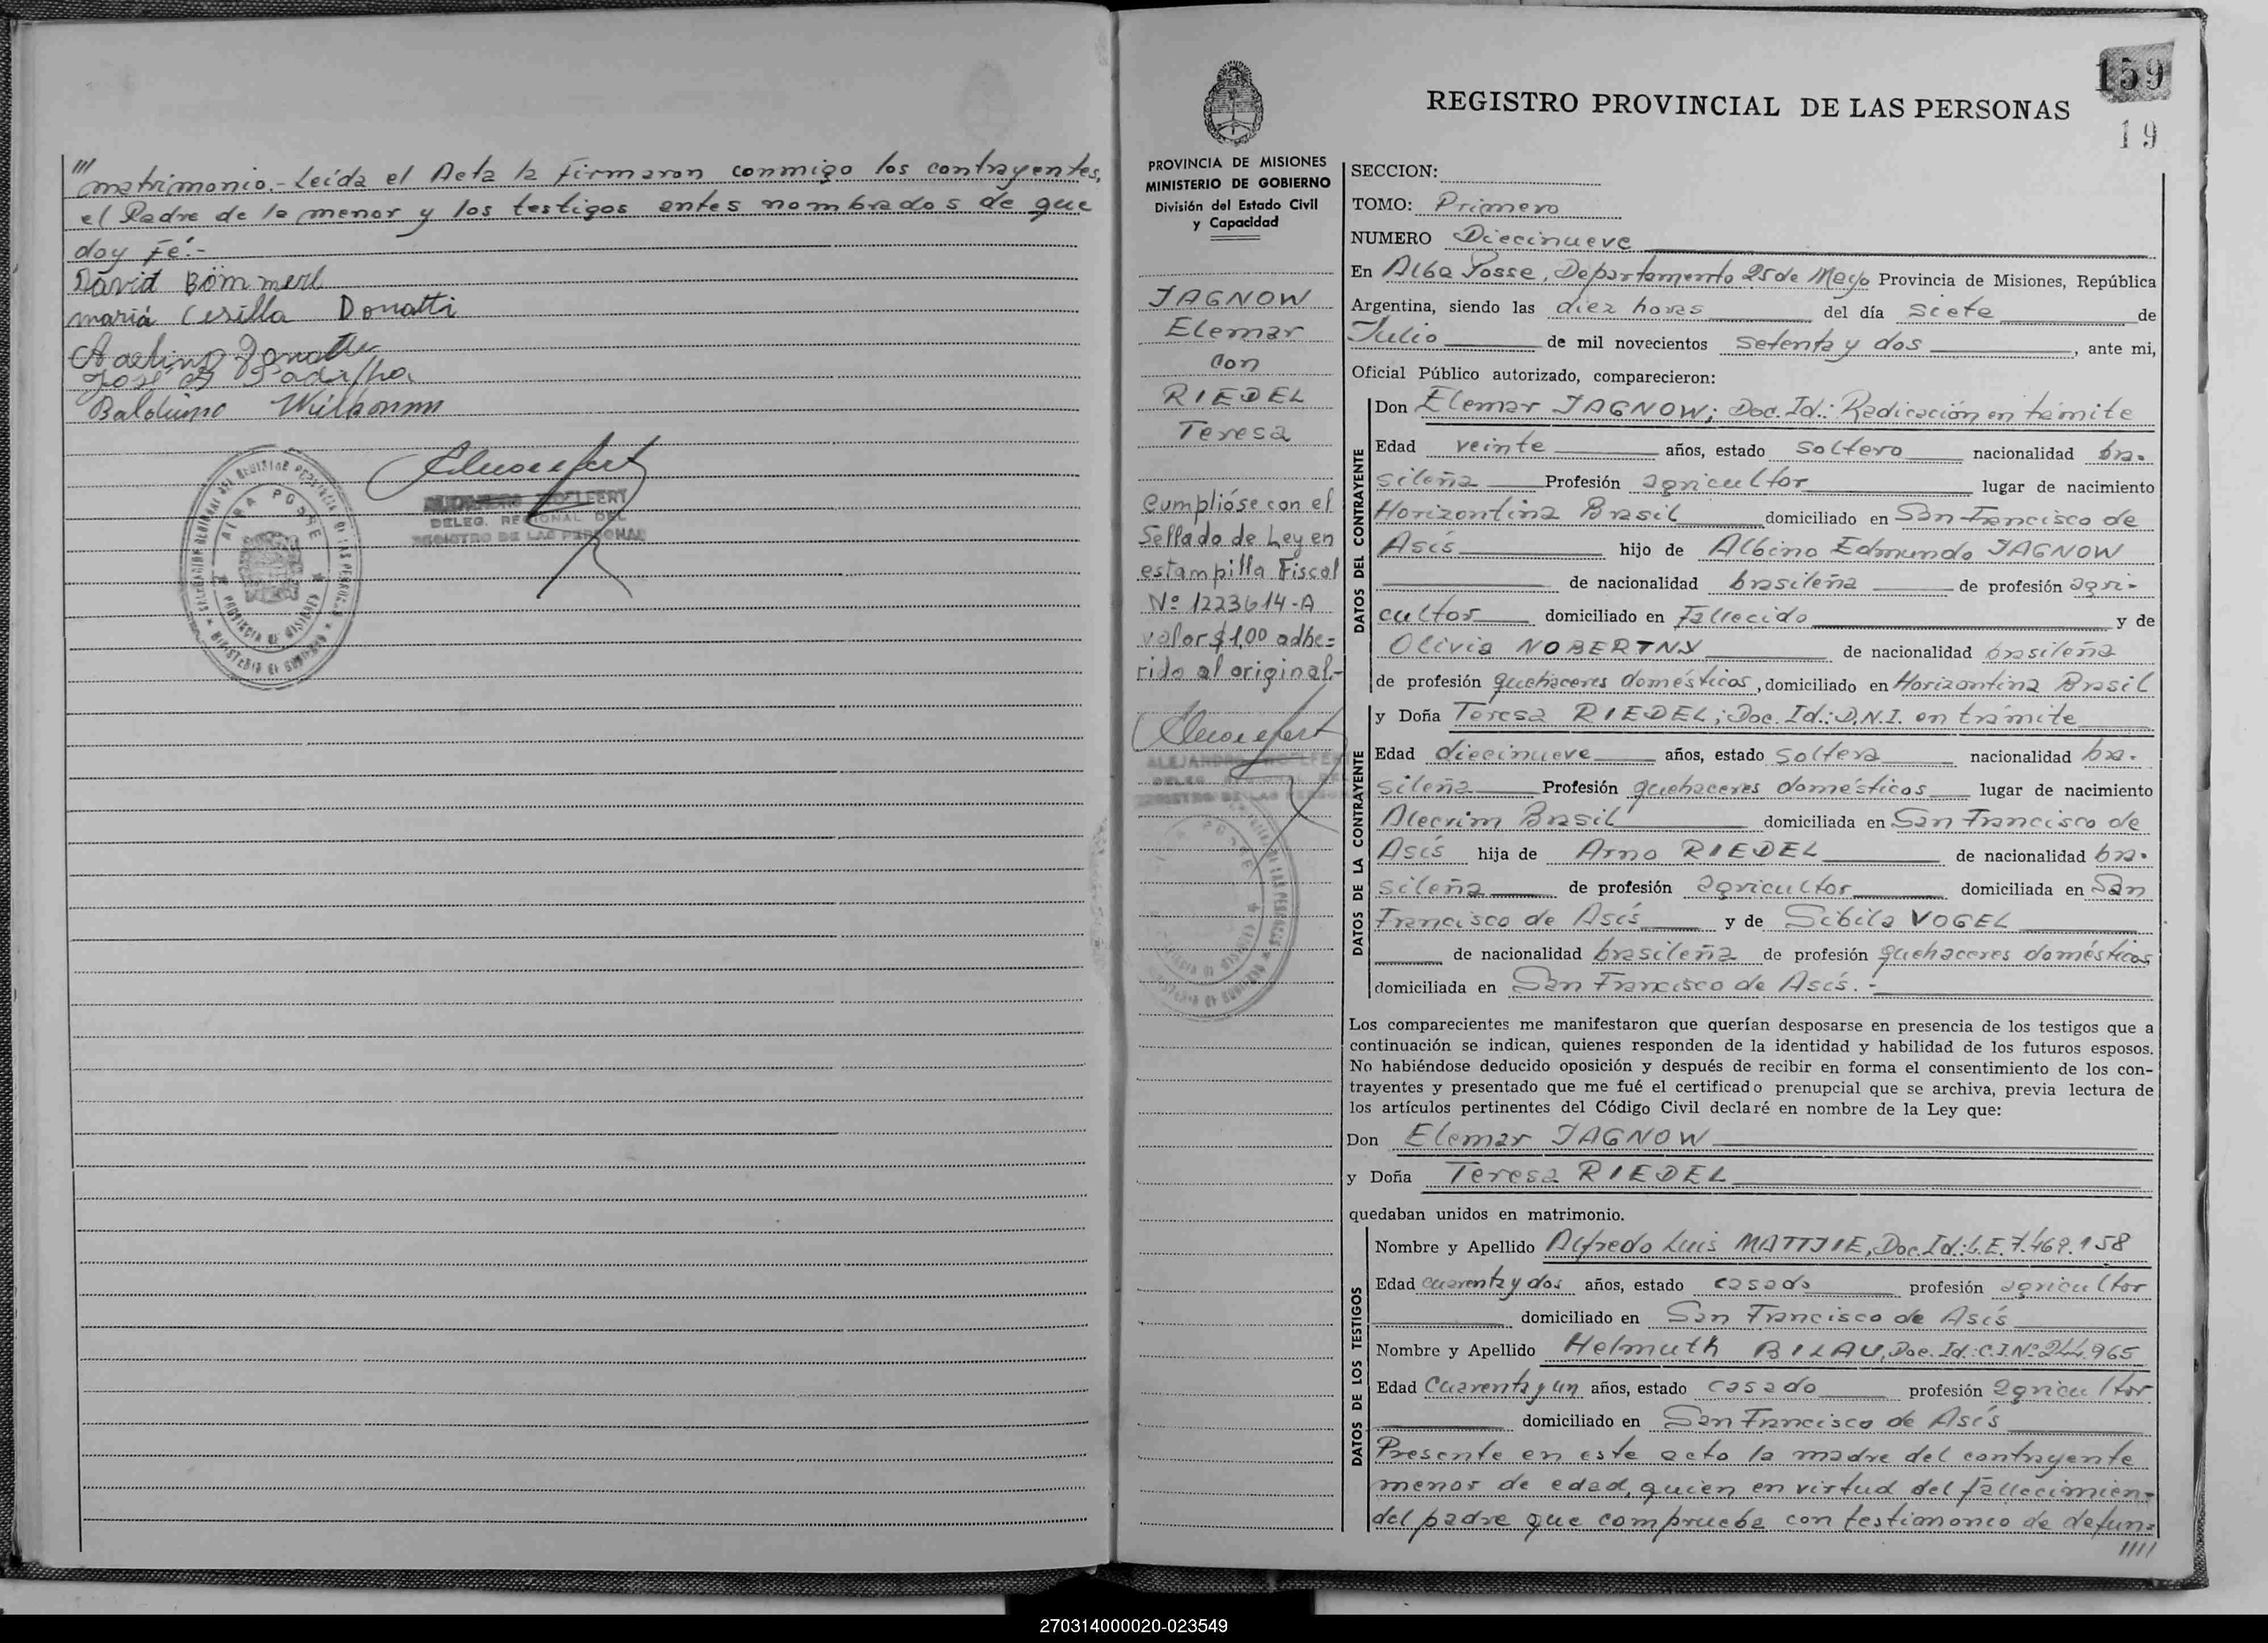 /// matrimonio.- Leída el Acta la firmaron conmigo los contrayentes,
el Padre de la menor y los testigos antes nombrados de que
doy Fé.-
David Bömmerl
mariá Cesilla Donatti
José
Balduino
DELEG. REGIONAL DEL
REGISTRO DE LAS PERSONAS
ALBA POSSE
PROVINCIA DE MISIONES
159
19
REGISTRO PROVINCIAL DE LAS PERSONAS
PROVINCIA DE MISIONES
MINISTERIO DE GOBIERNO
División del Estado Civil
y Capacidad
JAGNOW
Elemar
con
RIEDEL
Teresa
Cumplióse con el
Sellado de Ley en
estampilla Fiscal
Nº 1223614-A
valor $1,00 adhe=
rido al original.-
SECCION:
TOMO: Primero
NUMERO Diecinueve
En Alba Posse, Departamento 25 de Mayo Provincia de Misiones, República
Argentina, siendo las diez horas del día siete de
Julio de mil novecientos setenta y dos, ante mi,
Oficial Público autorizado, comparecieron:
DATOS DEL CONTRAYENTE
Don Elemar JAGNOW; Doc. Id.: Radicación en trámite
Edad veinte años, estado soltero nacionalidad bra-
sileña Profesión agricultor lugar de nacimiento
Horizontina Brasil domiciliado en San Francisco de
Asís hijo de Albino Edmundo JAGNOW
de nacionalidad brasileña de profesión agri-
cultor domiciliado en Fallecido y de
Olivia NOBERTNY de nacionalidad brasileña
de profesión quehaceres domésticos, domiciliado en Horizontina Brasil
DATOS DE LA CONTRAYENTE
y Doña Teresa RIEDEL; Doc. Id.: D.N.I. en trámite
Edad diecinueve años, estado soltera nacionalidad bra-
sileña Profesión quehaceres domésticos lugar de nacimiento
Alecrim Brasil domiciliada en San Francisco de
Asís hija de Arno RIEDEL de nacionalidad bra-
sileña de profesión agricultor domiciliada en San
Francisco de Asís y de Sibila VOGEL
de nacionalidad brasileña de profesión quehaceres domésticos
domiciliada en San Francisco de Asís.-
Los comparecientes me manifestaron que querían desposarse en presencia de los testigos que a
continuación se indican, quienes responden de la identidad y habilidad de los futuros esposos.
No habiéndose deducido oposición y después de recibir en forma el consentimiento de los con-
trayentes y presentado que me fué el certificado prenupcial que se archiva, previa lectura de
los artículos pertinentes del Código Civil declaré en nombre de la Ley que:
Don Elemar JAGNOW
y Doña Teresa RIEDEL
quedaban unidos en matrimonio.
DATOS DE LOS TESTIGOS
Nombre y Apellido Alfredo Luis MATTJIE, Doc. Id.: L.E. 7.469.158
Edad cuarenta y dos años, estado casado profesión agricultor
domiciliado en San Francisco de Asís
Nombre y Apellido Helmuth BILAU, Doc. Id.: C.I. Nº 244.965
Edad Cuarenta y un años, estado casado profesión agricultor
domiciliado en San Francisco de Asís
Presente en este acto la madre del contrayente
menor de edad, quien en virtud del fallecimien-
del padre que comprueba con testimonio de defun=
////
270314000020-023549